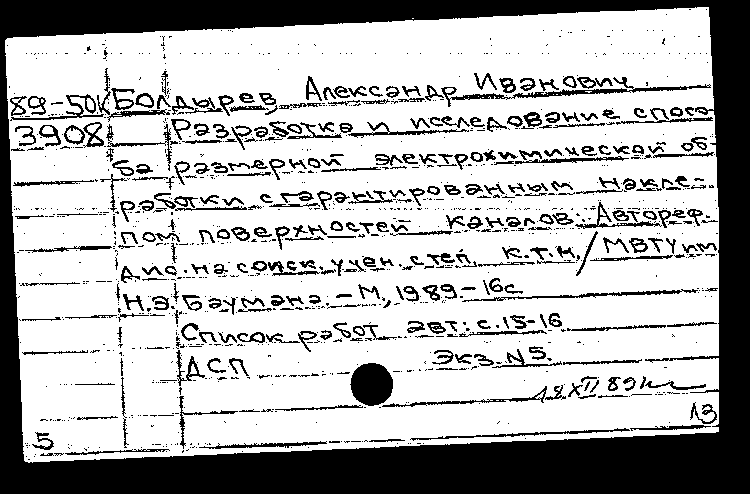 89-50К Болдырев, Александр Иванович.
3908 Разработка и исследование спосо-
ба размерной электрохимической об-
работки с гарантированным накле-
пом поверхностей каналов: Автореф.
дис. на соиск. учен. степ. к.т.н. / МВТУ им.
Н.Э. Баумана. - М., 1989. - 16с.
Список работ авт.: с. 15-16
ДСП Экз. N 5.
XII 89
13
5